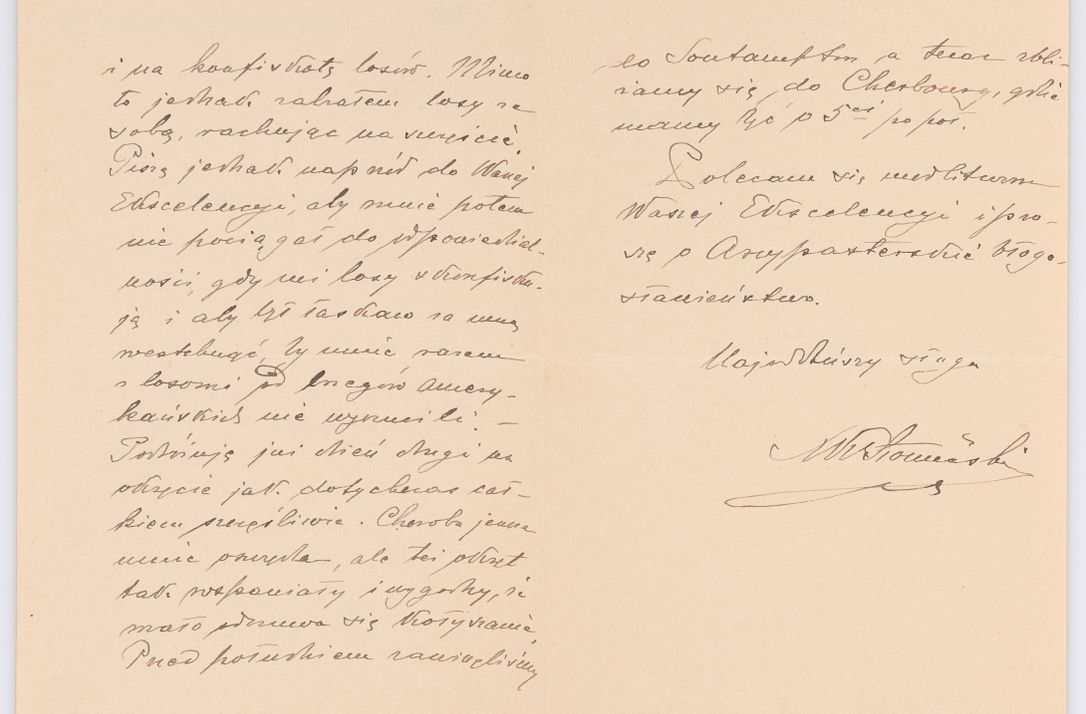 i na konfiskatę losów. Mimo
to jednak zabrałem losy ze
sobą, rachując na szczęście.
Piszę jednak naprzód do Waszej
Ekscelencyi, aby mnie potem
nie pociągał do odpowiedzial-
ności, gdy mi losy skonfisku-
ją i aby był łaskaw za mną
westchnąć, by mnie razem
z losami od brzegów amery-
kańskich nie wyrzucili. —
Podróżuję już dzień drugi na
okręcie jak dotychczas cał-
kiem szczęśliwie. Choroba jeszcze
mnie oszczędza, ale też okręt
tak wspaniały i wygodny, że
mało odczuwa się kołysanie.
Przed południem zawinęliśmy
do Soutampton a teraz zbli-
żamy się do Cherbourg, gdzie
mamy być o 5ej po poł.
Polecam się modlitwom
Waszej Ekscelencyi i pro-
szę o Arcypasterskie błogo-
sławieństwo.
Najniższy sługa